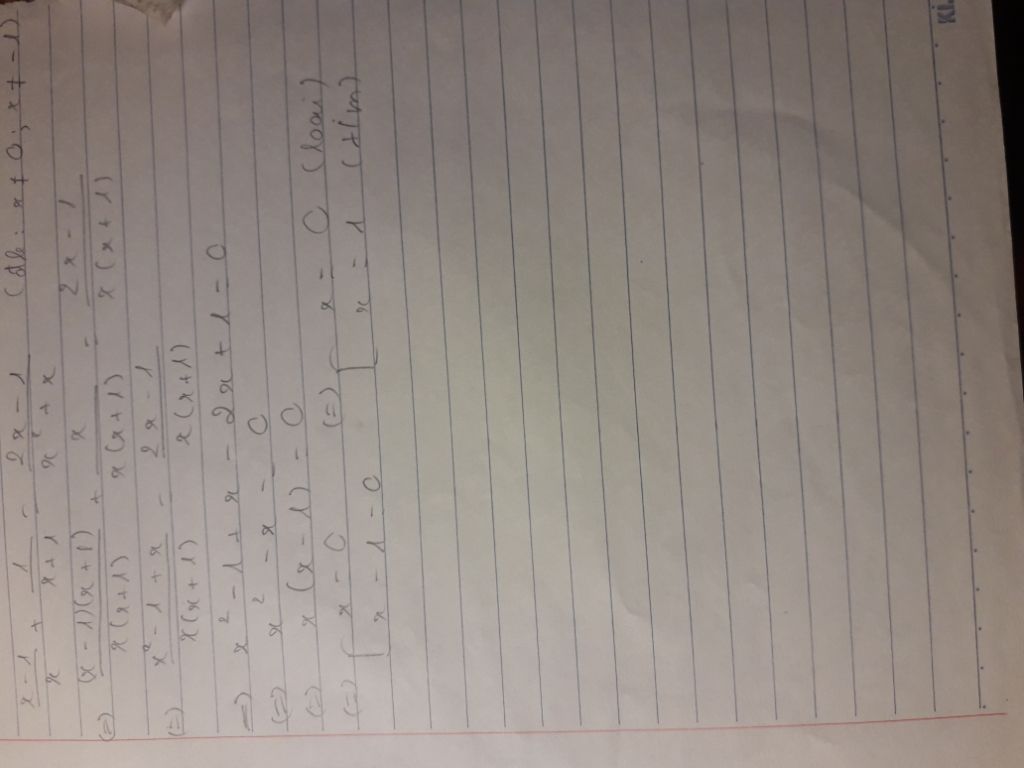 x-1/x + 1/x+1 = 2x-1/x²+x (đk: x ≠ 0; x ≠ -1)
(=) (x-1)(x+1)/x(x+1) + x/x(x+1) = 2x-1/x(x+1)
(=) x²-1+x/x(x+1) = 2x-1/x(x+1)
=) x²-1+x-2x+1=0
(=) x²-x=0
(=) x(x-1)=0
(=) [x=0 (=) [x=0 (loại)
x-1=0 x=1 (t/m)
Ki